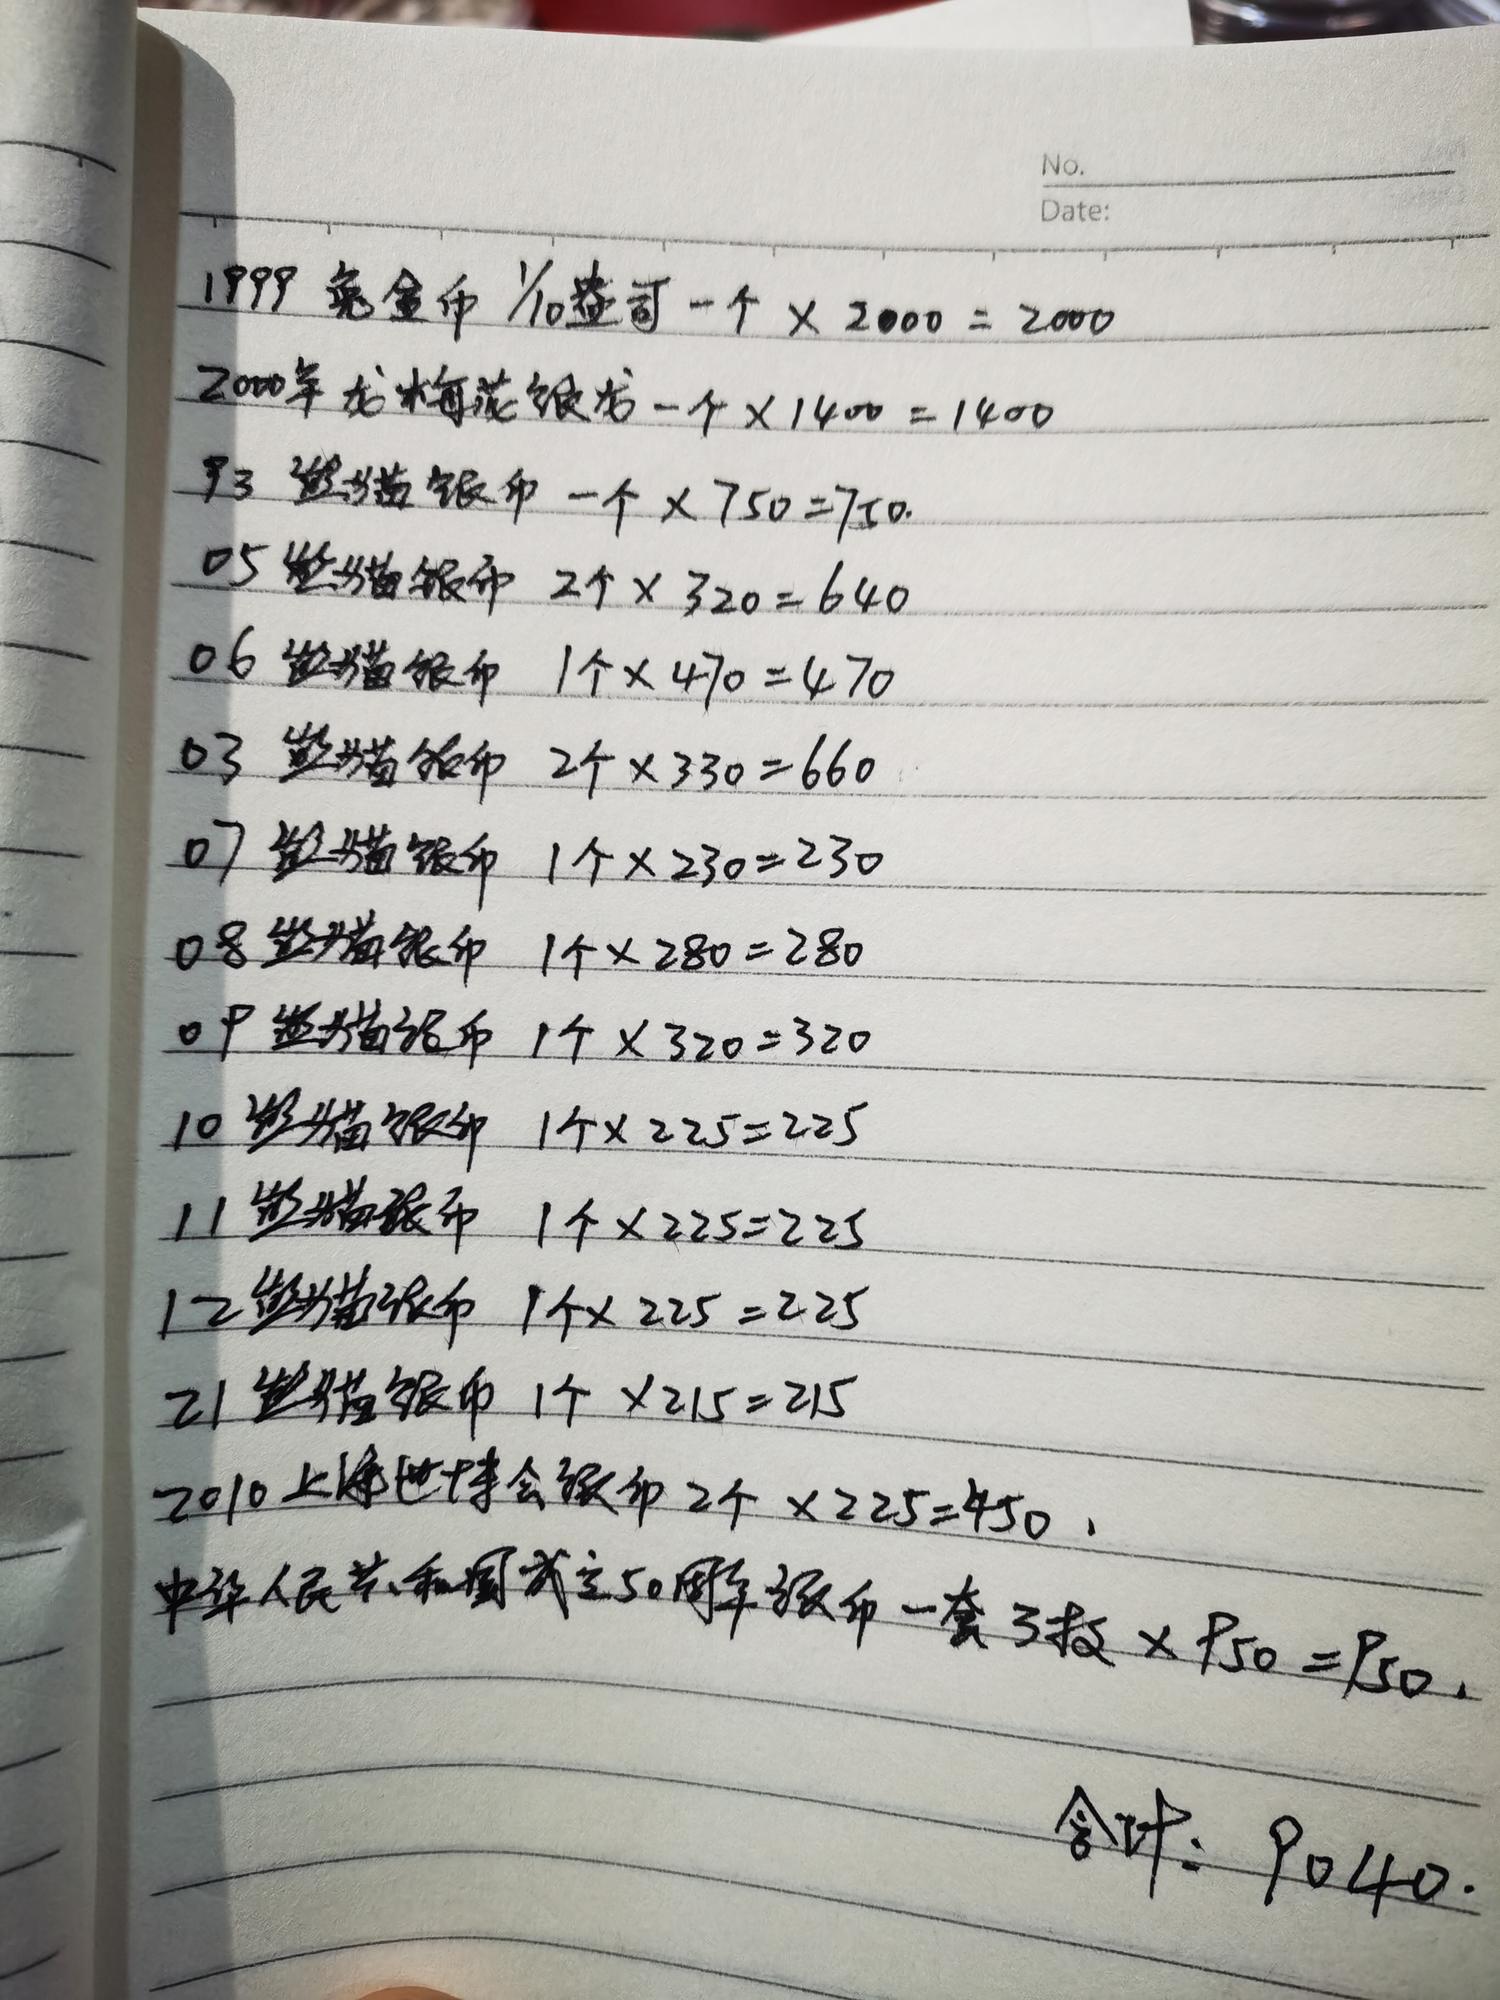 No.
Date:
1999 兔金币 1/10盎司 一个 × 2000 = 2000
2000年 龙梅花银龙 一个 × 1400 = 1400
93 熊猫银币 一个 × 750 = 750.
05 熊猫银币 2个 × 320 = 640
06 熊猫银币 1个 × 470 = 470
03 熊猫银币 2个 × 330 = 660
07 熊猫银币 1个 × 230 = 230
08 熊猫银币 1个 × 280 = 280
09 熊猫银币 1个 × 320 = 320
10 熊猫银币 1个 × 225 = 225
11 熊猫银币 1个 × 225 = 225
12 熊猫银币 1个 × 225 = 225
21 熊猫银币 1个 × 215 = 215
2010 上海世博会银币 2个 × 225 = 450.
中华人民共和国成立50周年银币 一套 3枚 × 950 = 950.
合计: 9040.